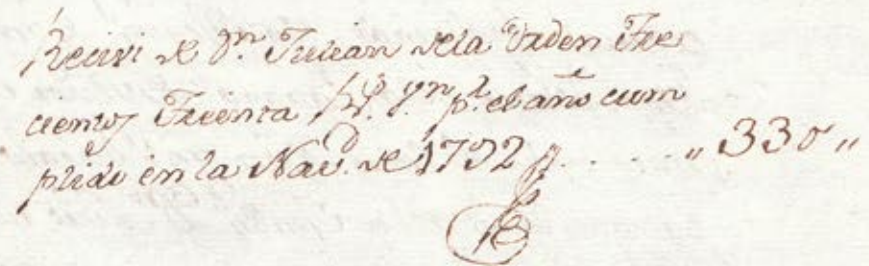 Recivi de Dn. Julian dela Orden Tre
cientos Treinta Rs. Vn. pr. el año cum
plido en la Navd. de 1792 . . . . . „ 330 „